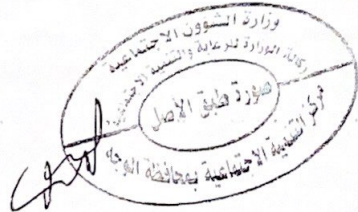 وزارة الشؤون الاجتماعية
وكالة الوزارة للرعاية والتنمية الاجتماعية
صورة طبق الأصل
مركز التنمية الاجتماعية بمحافظة الوجه